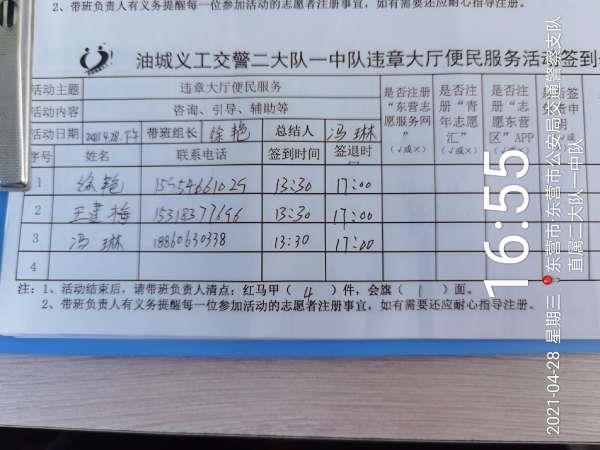 2、带班负责人有义务提醒每一位参加活动的志愿者注册事宜，如有需要还应耐心指导注册。
油城义工交警二大队一中队违章大厅便民服务活动签到
活动主题 违章大厅便民服务
活动内容 咨询、引导、辅助等
是否注册“东营志愿服务网” （√或×）
是否注册“青年志愿汇” （√或×）
是否注册“志愿东营区”APP （√或×）
活动日期 2021.4.28.下午 带班组长 徐艳 总结人 冯琳
序号 姓名 联系电话 签到时间 签退时
1 徐艳 15954661029 13:30 17:00
2 王建梅 15318377696 13:30 17:00
3 冯琳 18860630338 13:30 17:00
4
注：1、活动结束后，请带班负责人清点：红马甲（4）件，会旗（1）面。
2、带班负责人有义务提醒每一位参加活动的志愿者注册事宜，如有需要还应耐心指导注册。
16:55
2021-04-28 星期三 东营市·东营市公安局交通警察支队
直属二大队一中队